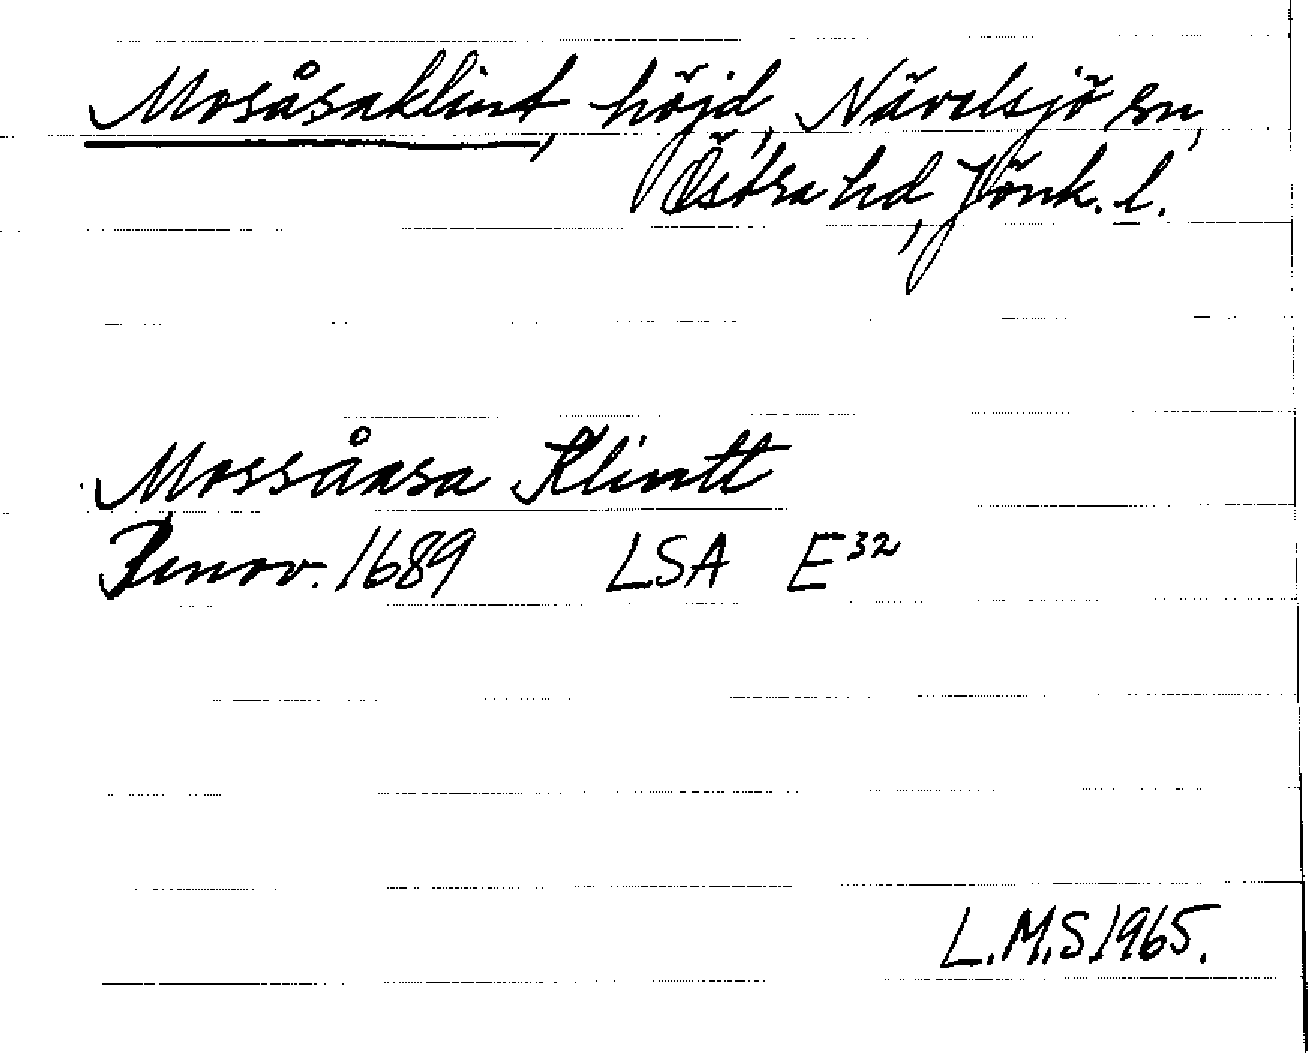 Mosåsaklint, höjd, Nävelsjö sn,
Östra hd, Jönk. l.
Mossåasa Klintt
Renov. 1689 LSA E32
L.M.S 1965.